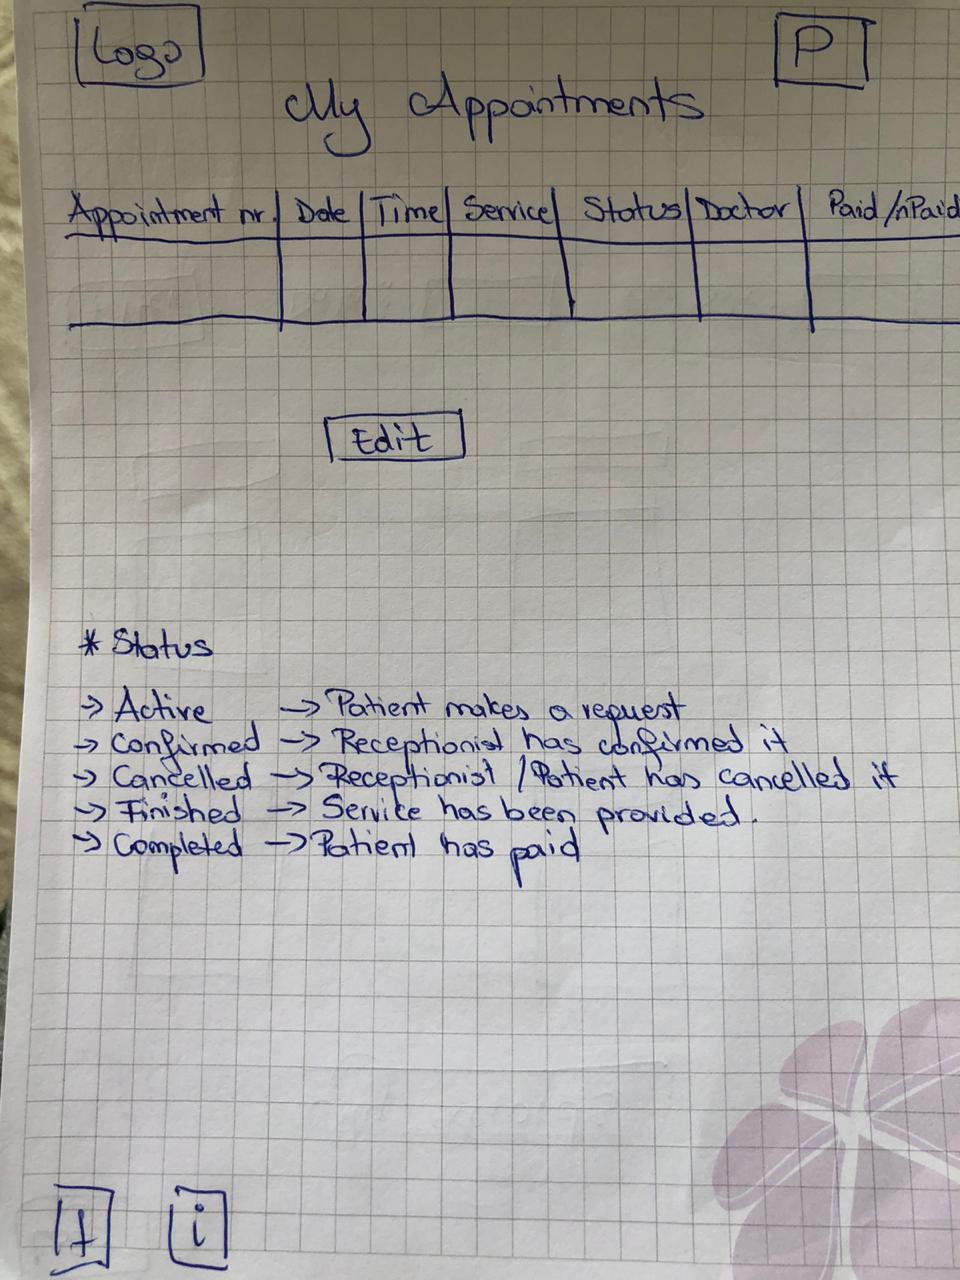 Logo
P
My Appointments
Appointment nr. Date Time Service Status Doctor Paid/nPaid
Edit
* Status
→ Active → Patient makes a request
→ Confirmed → Receptionist has confirmed it
→ Cancelled → Receptionist/Patient has cancelled it
→ Finished → Service has been provided.
→ Completed → Patient has paid
f i